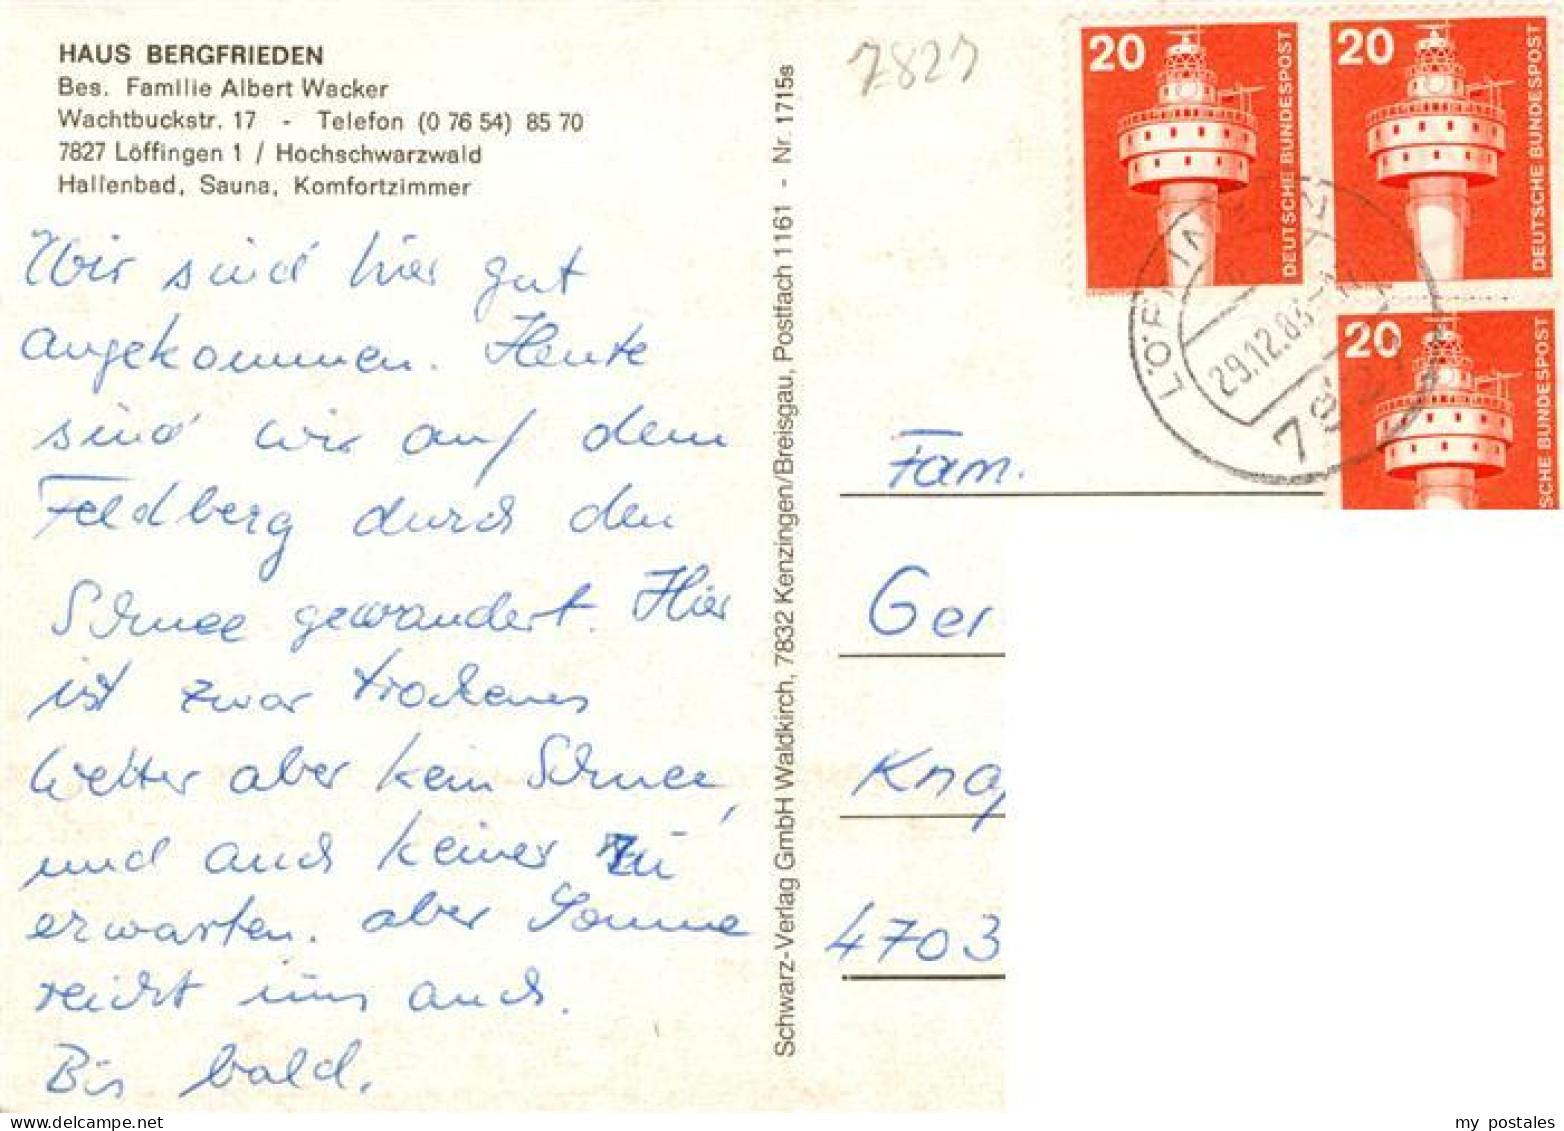 HAUS BERGFRIEDEN
Bes. Familie Albert Wacker
Wachtbuckstr. 17 - Telefon (0 76 54) 85 70
7827 Löffingen 1 / Hochschwarzwald
Hallenbad, Sauna, Komfortzimmer
Wir sind hier gut
angekommen. Heute
sind wir auf dem
Feldberg durch den
Schnee gewandert. Hier
ist zwar trockenes
Wetter aber kein Schnee,
und auch keiner zu
erwarten. aber Sonne
reicht uns auch.
Bis bald.
Schwarz-Verlag GmbH Waldkirch, 7832 Kenzingen/Breisgau, Postfach 1161 - Nr. 1715s
7827
20
DEUTSCHE BUNDESPOST
20
DEUTSCHE BUNDESPOST
20
SCHE BUNDESPOST
LÖFFINGEN
29.12.83
7827
Fam.
Ger
Knap
4703
my postales